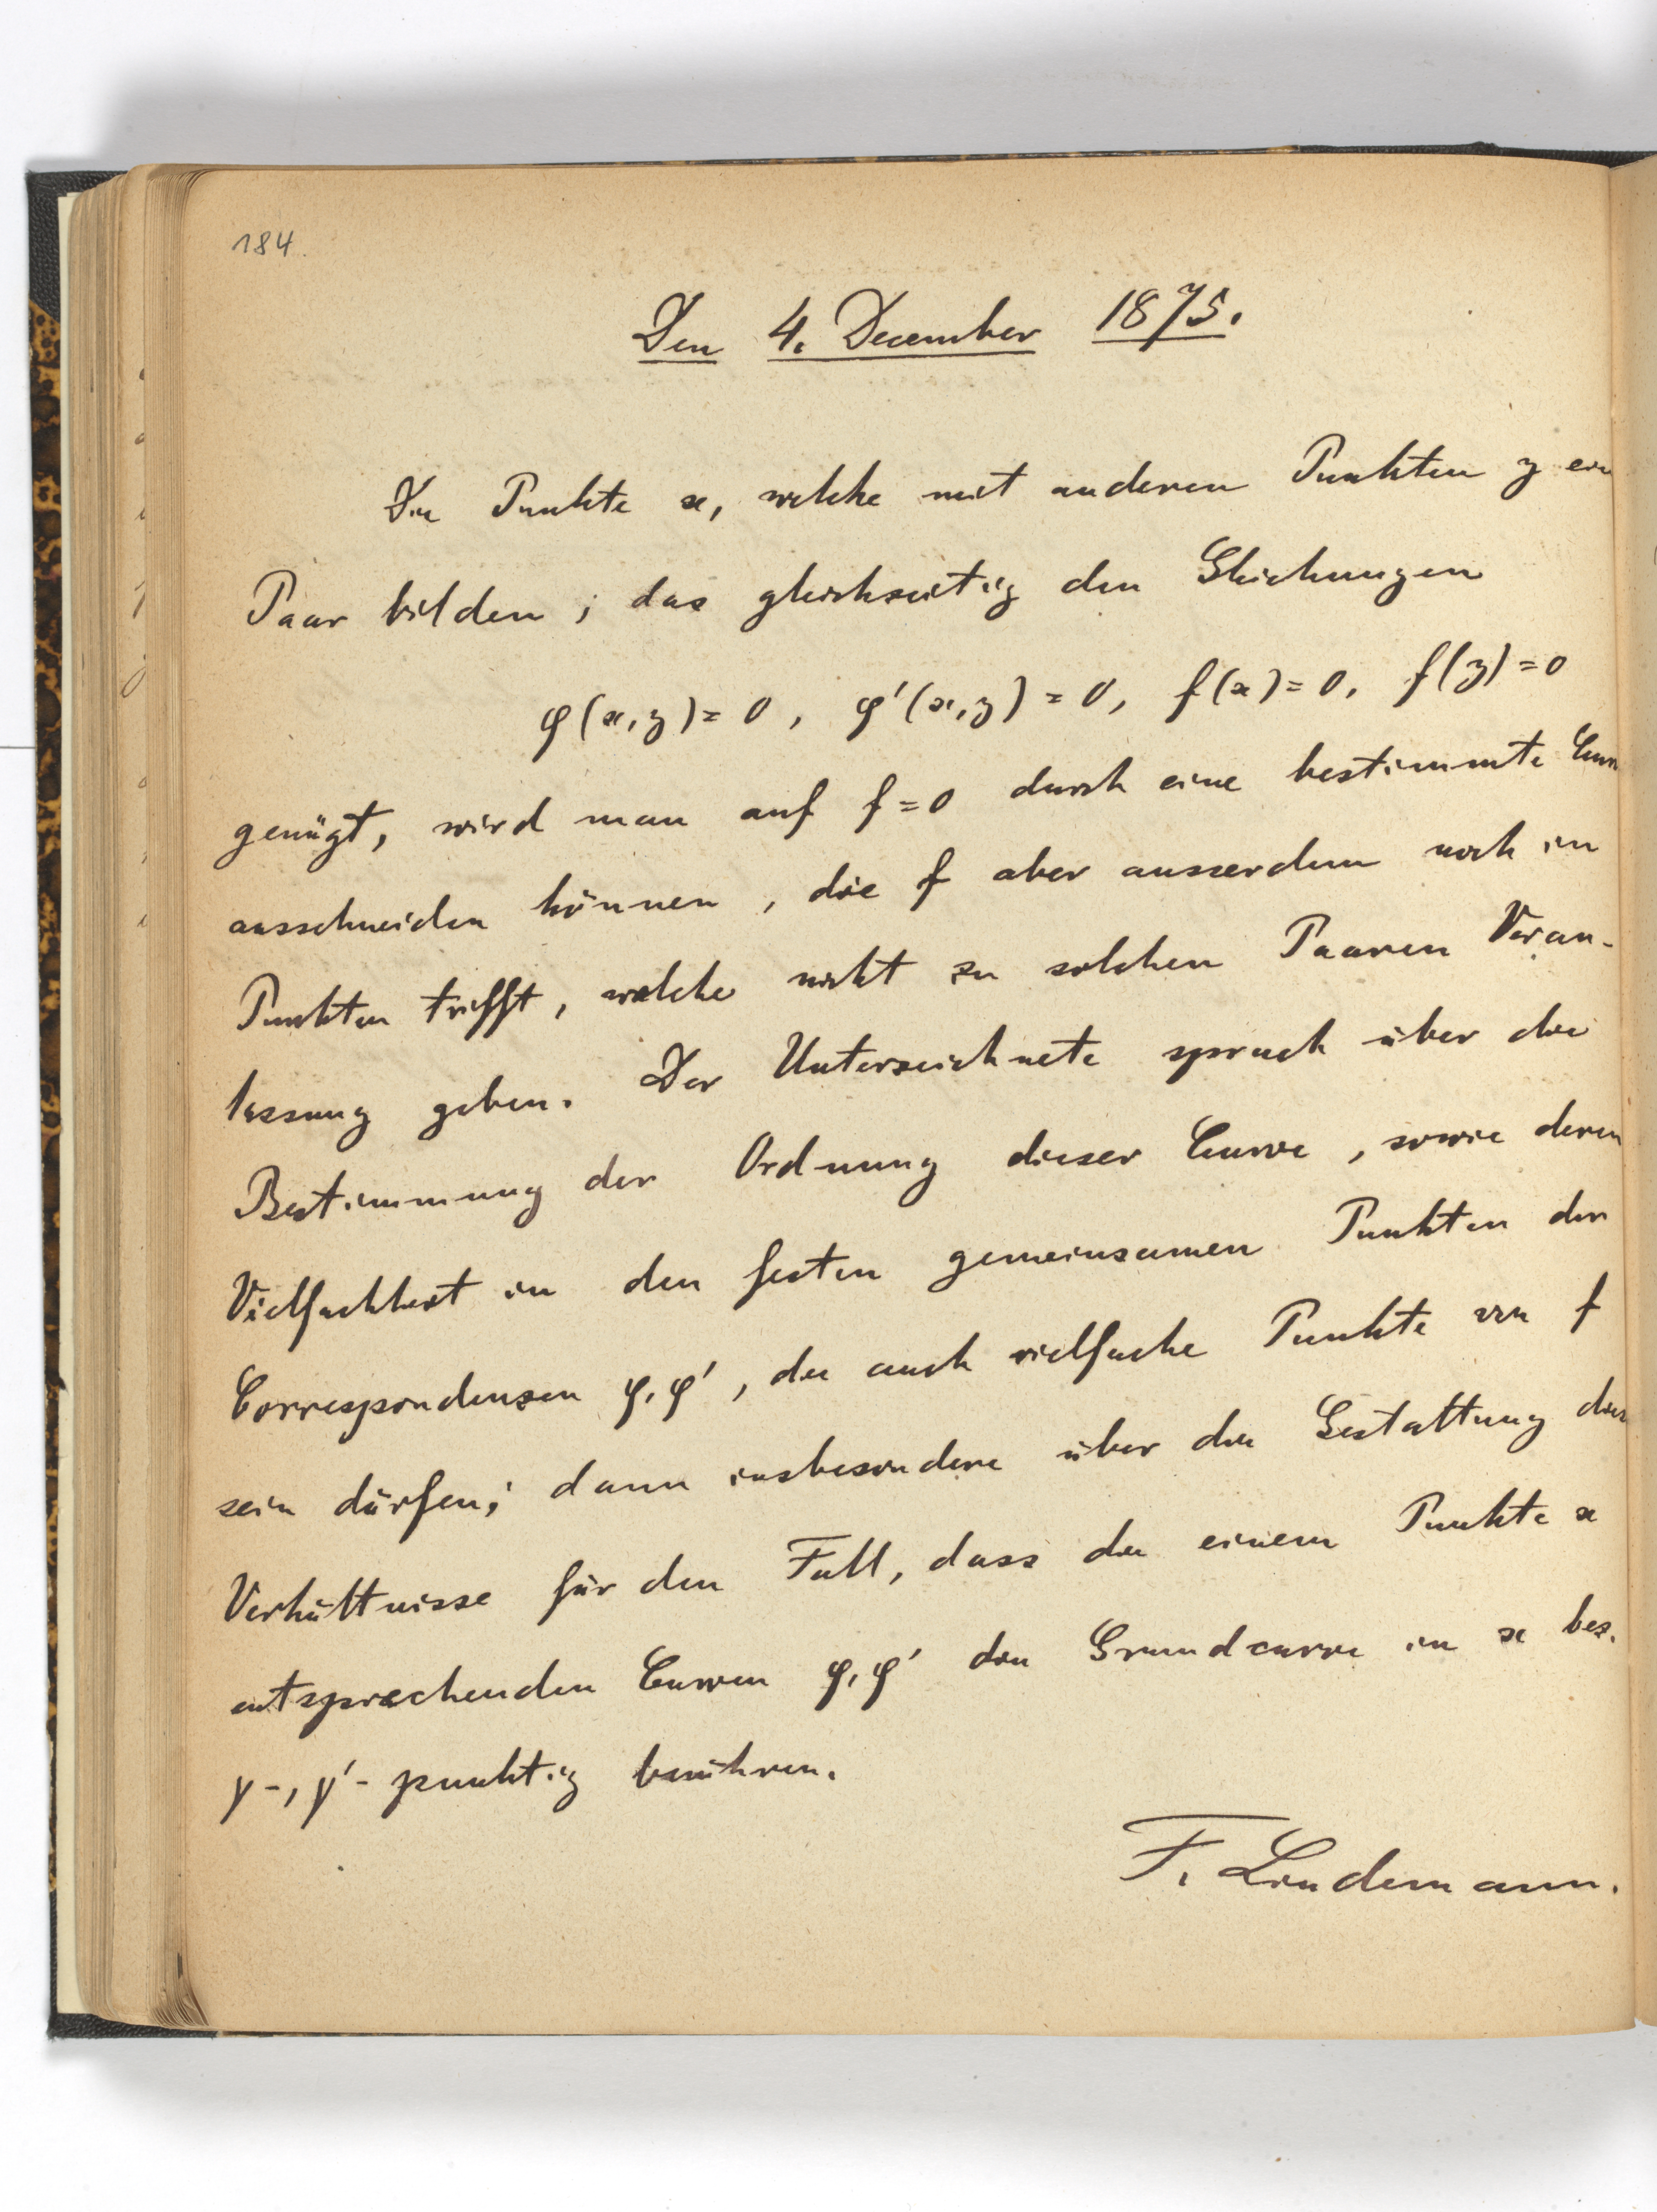 184.
Den 4. December 1875.
Die Punkte x, welche mit anderen Punkten y ein
Paar bilden, das gleichzeitig den Gleichungen
φ(x,y)=0, φ'(x,y)=0, f(x)=0, f(y)=0
genügt, wird man auf f=0 durch eine bestimmte Curve
ausschneiden können, die f aber ausserdem noch in
Punkten trifft, welche nicht zu solchen Paaren Veran-
lassung geben. Der Unterzeichnete sprach über die
Bestimmung der Ordnung dieser Curve, sowie deren
Vielfachheit in den festen gemeinsamen Punkten der
Correspondenzen φ, φ', die auch vielfache Punkte von f
sein dürfen; dann insbesondere über die Gestaltung der
Verhältnisse für den Fall, dass die einem Punkte x
entsprechenden Curven φ, φ' die Grundcurve in x bez.
γ-, γ'-punktig berühren.
F. Lindemann.